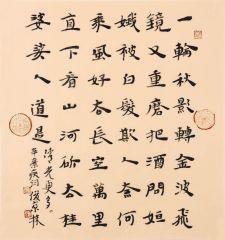 一輪秋影轉金波飛
鏡又重磨酒問姮
娥被白髮欺人奈何
乘風好去長空萬里
直下看山河斫去桂
婆娑人道是
清光更多
辛棄疾詞